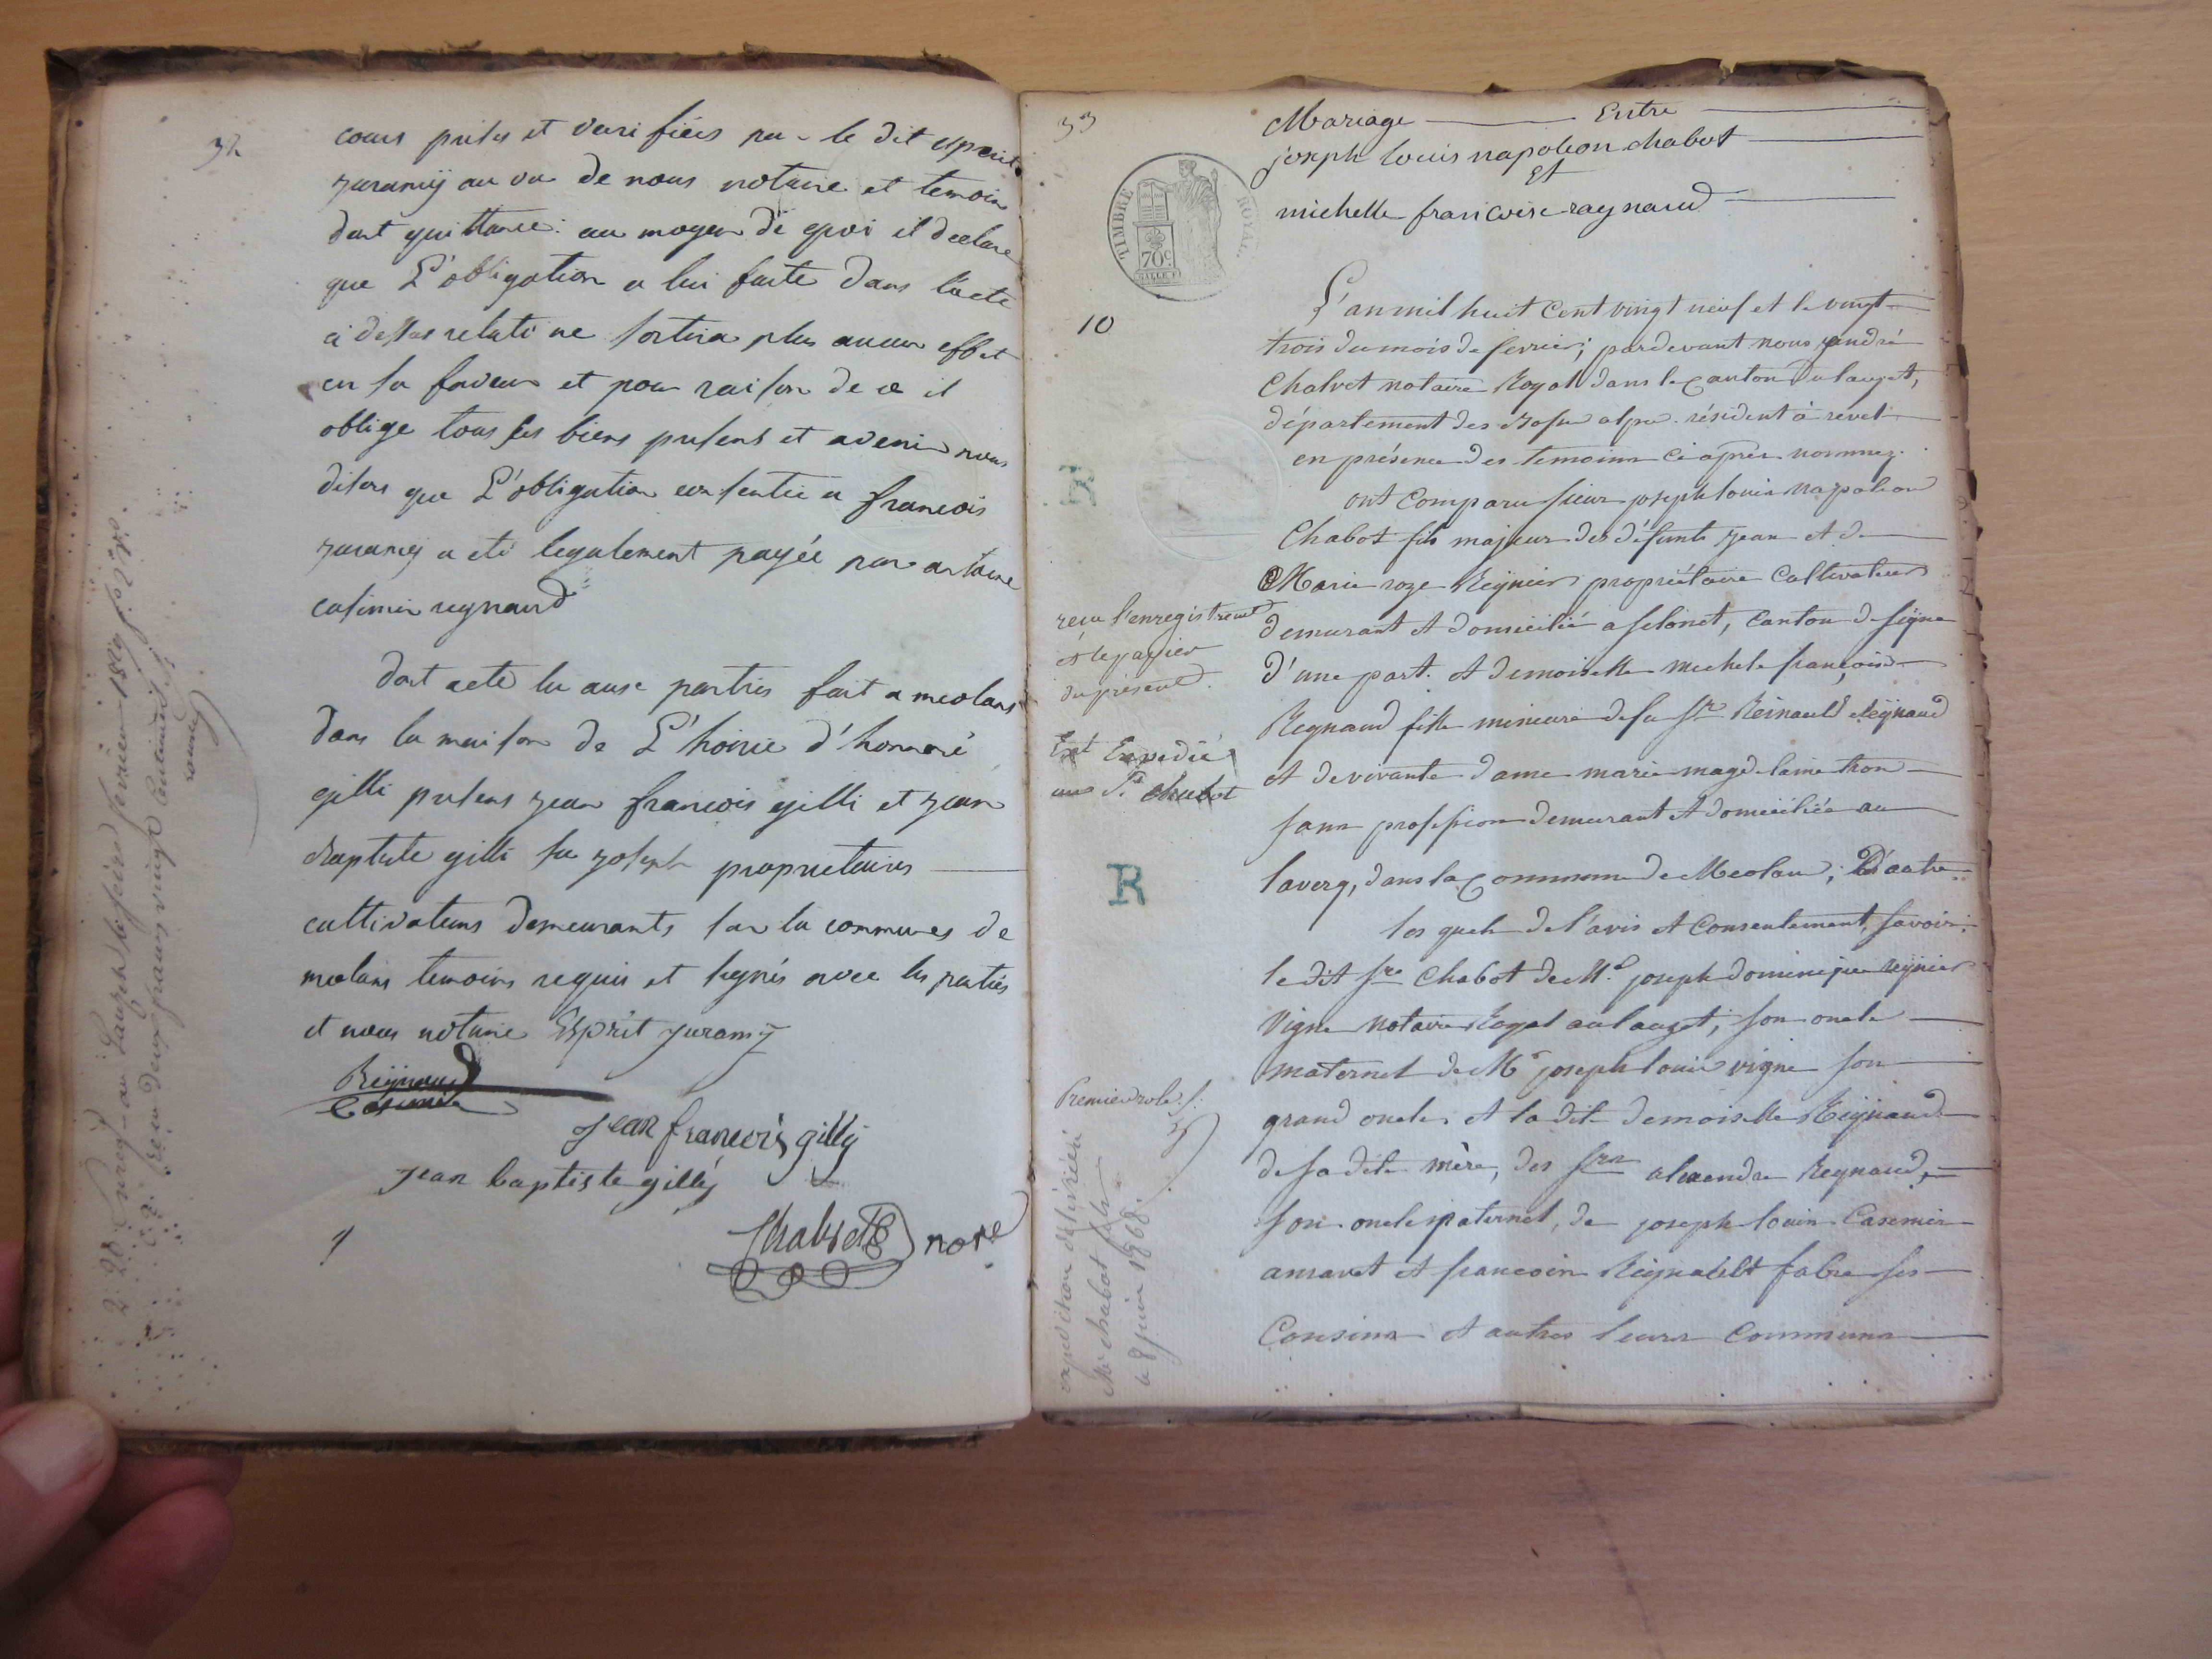 32
cours prises et verifiées par le dit esprit
juramÿ au vu de nous notaire et temoins
dont quittance: au moyen de quoi il declare
que L'obligation a lui faite dans l'acte
ci dessus relaté ne sortira plus aucun effet
en sa faveur et pour raison de ce il
oblige tous ses biens presens et avenir nous
disons que L'obligation consentie a francois
juramy a eté legalement payée par antoine
casimir reynaud
dont acte lu aux parties fait a meolans
dans la maison de L'hoirie d'honnoré
gilli presens jean francois gilli et jean
Baptiste gilli feu joseph proprietaires
cultivateurs demeurants sur la communes de
meolans temoins requis et signés avec les parties
et nous notaire Esprit juramÿ
Reijnaud
Casimir
jean francois gillÿ
jean baptiste gillÿ
Chalvet nore
33
Mariage Entre
joseph louis napoleon chabot
Et
michelle francoise raynaud
TIMBRE ROYAL
70c
10
L'an mil huit Cent vingt neuf et le vingt
trois du mois de fevrier; pardevant nous andré
Chalvet notaire Royal dans le canton du lauzet,
département des Basses alpes résident à revel
en présence des temoins ci après nommez.
ont Comparu sieur joseph louis Napoleon
Chabot fils majeur des défunts jean et de
Marie roze Reynier propriétaire Cultivateur
demurant et domicilié a selonet, Canton de seÿne
d'une part. et demoiselle michele françoise
Reynaud fille mineure de feu Sr Reinauld Reÿnaud
et de vivante dame marie magdelaine tron
sans profession demurant et domiciliée au
laverq, dans la Commune de Meolans; D'autre
les quels de l'avis et Consentement, savoir:
le dit Sre Chabot de Me joseph dominique reynier
Vigne notaire Royal au lauzet, son oncle
maternel de Mr joseph louis vigne son
grand oncle, et la dite demoiselle Reijnaud
de sa dite mère, des Srs alexandre Reynaud,
son oncle paternel, de joseph louis Casemir
et francois Reynauld fabre ses
Cousins et autres leurs Communs
R
recu l'enregistremt
et le papier
du présent.
Ext Expedié
Sr chabot
R
Premier role
expedition delivrée
Me chabot
le 8 juin 1868.